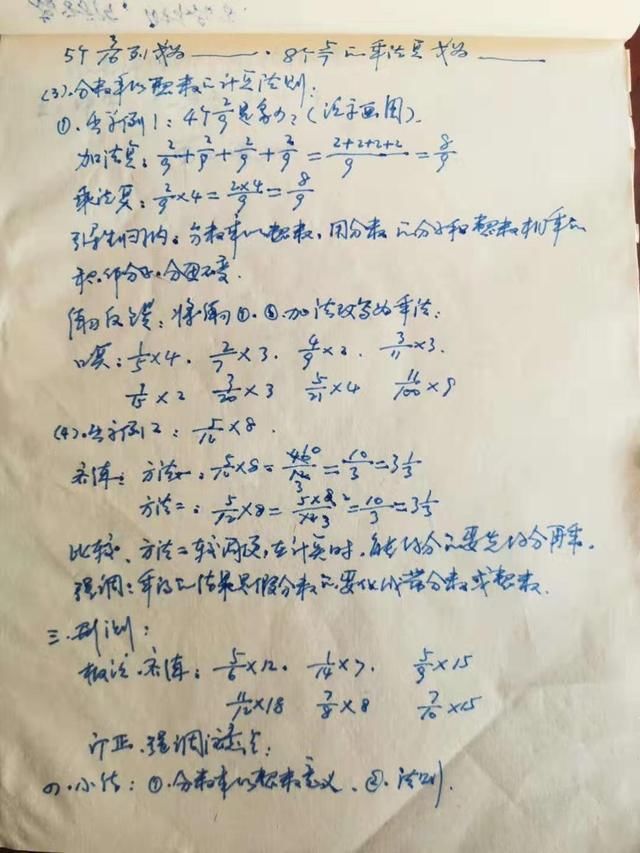 5个3/10列式为______. 8个5/7的乘法算式为______
(3).分数乘以整数的计算法则:
①.出示例1: 4个2/9是多少?(线示画图).
加法算: 2/9+2/9+2/9+2/9=(2+2+2+2)/9=8/9
乘法算: 2/9×4=(2×4)/9=8/9
引导生归纳: 分数乘以整数,用分数的分子和整数相乘的
积作分子,分母不变.
反馈: 将 ①.③.加法改写为乘法:
口算: 1/5×4. 2/7×3. 4/9×2. 3/11×3.
×2 3/20×3 5/21×4 11/100×9
(4).出示例2: 5/12×8.
方法一: 5/12×8=40/12=10/3=3 1/3
方法二: 5/12×8=(5×8)/12=10/3=3 1/3
比较、方法二较简便,在计算时,能约分的要先约分再乘.
强调: 乘得的结果是假分数的要化成带分数或整数.
三. :
板演. : 5/6×12. 1/14×7. 5/9×15
11/12×18 7/8×8 7/10×15
订正.强调注意点:
四.小结: ①.分数乘以整数意义. ②.法则.